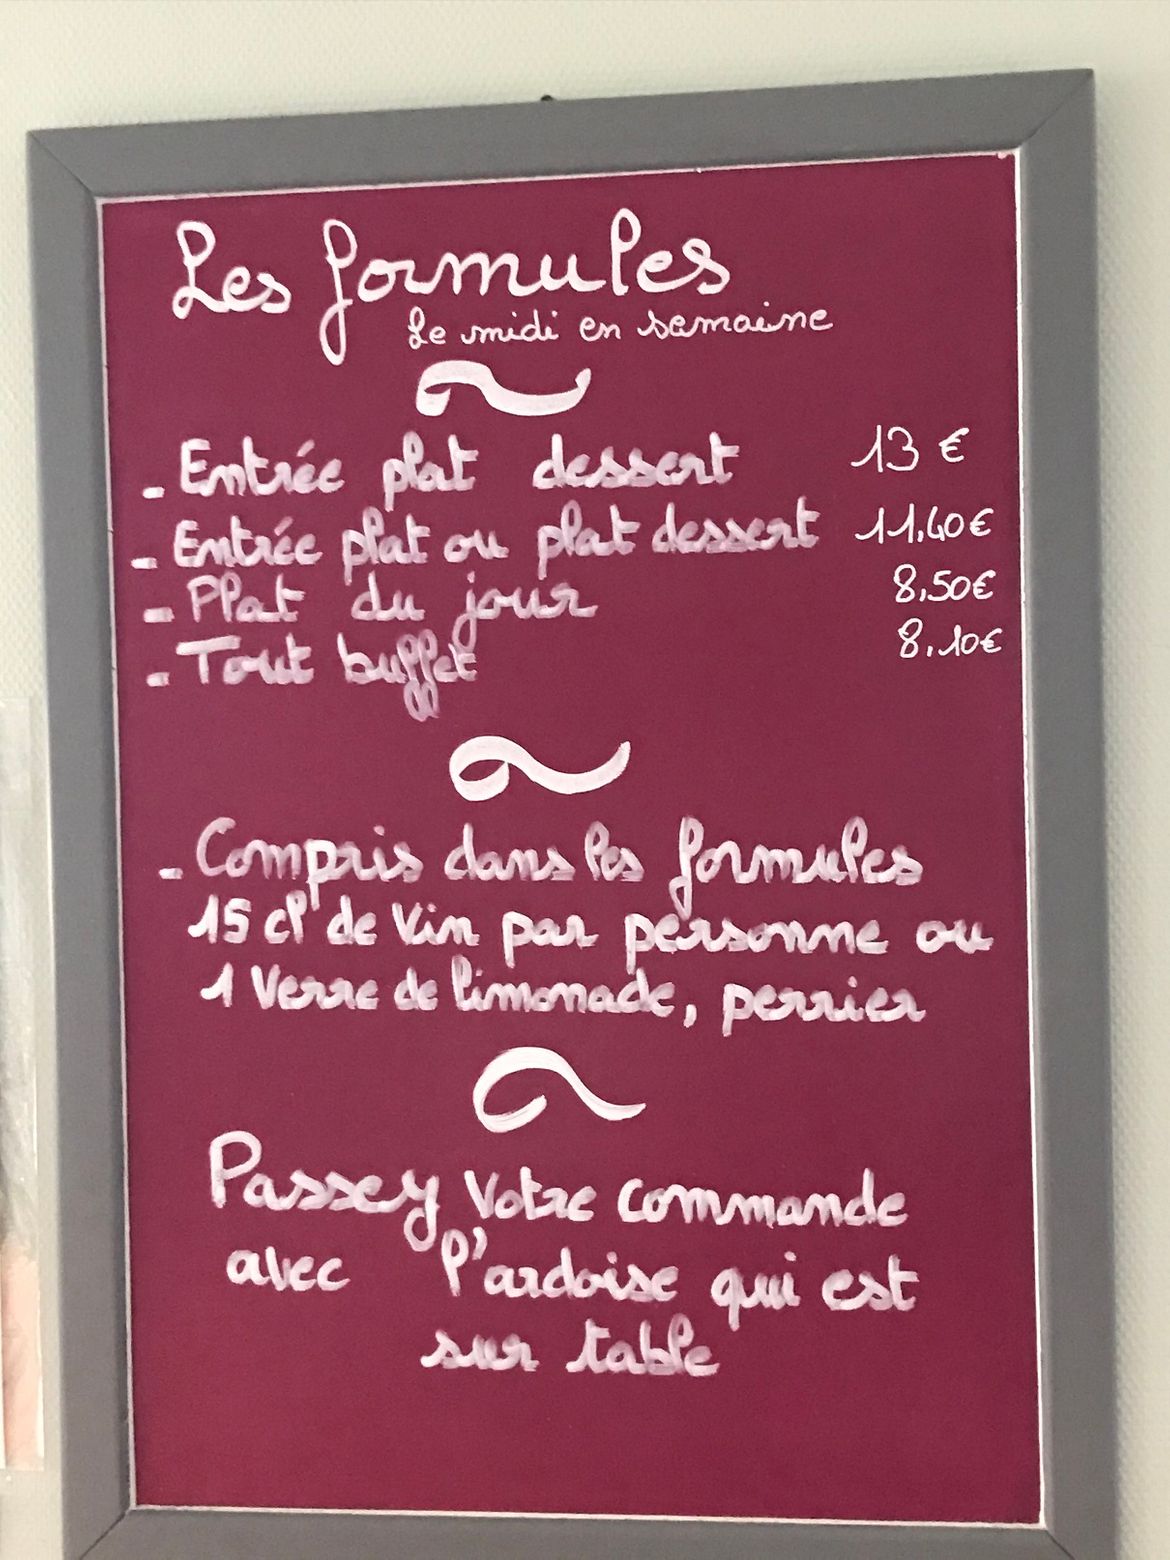 Les formules
Le midi en semaine
- Entrée plat dessert 13 €
- Entrée plat ou plat dessert 11,40€
- Plat du jour 8,50€
- Tout buffet 8,10€
- Compris dans les formules
15 cl de vin par personne ou
1 verre de limonade, perrier
Passez votre commande
avec l'ardoise qui est
sur table